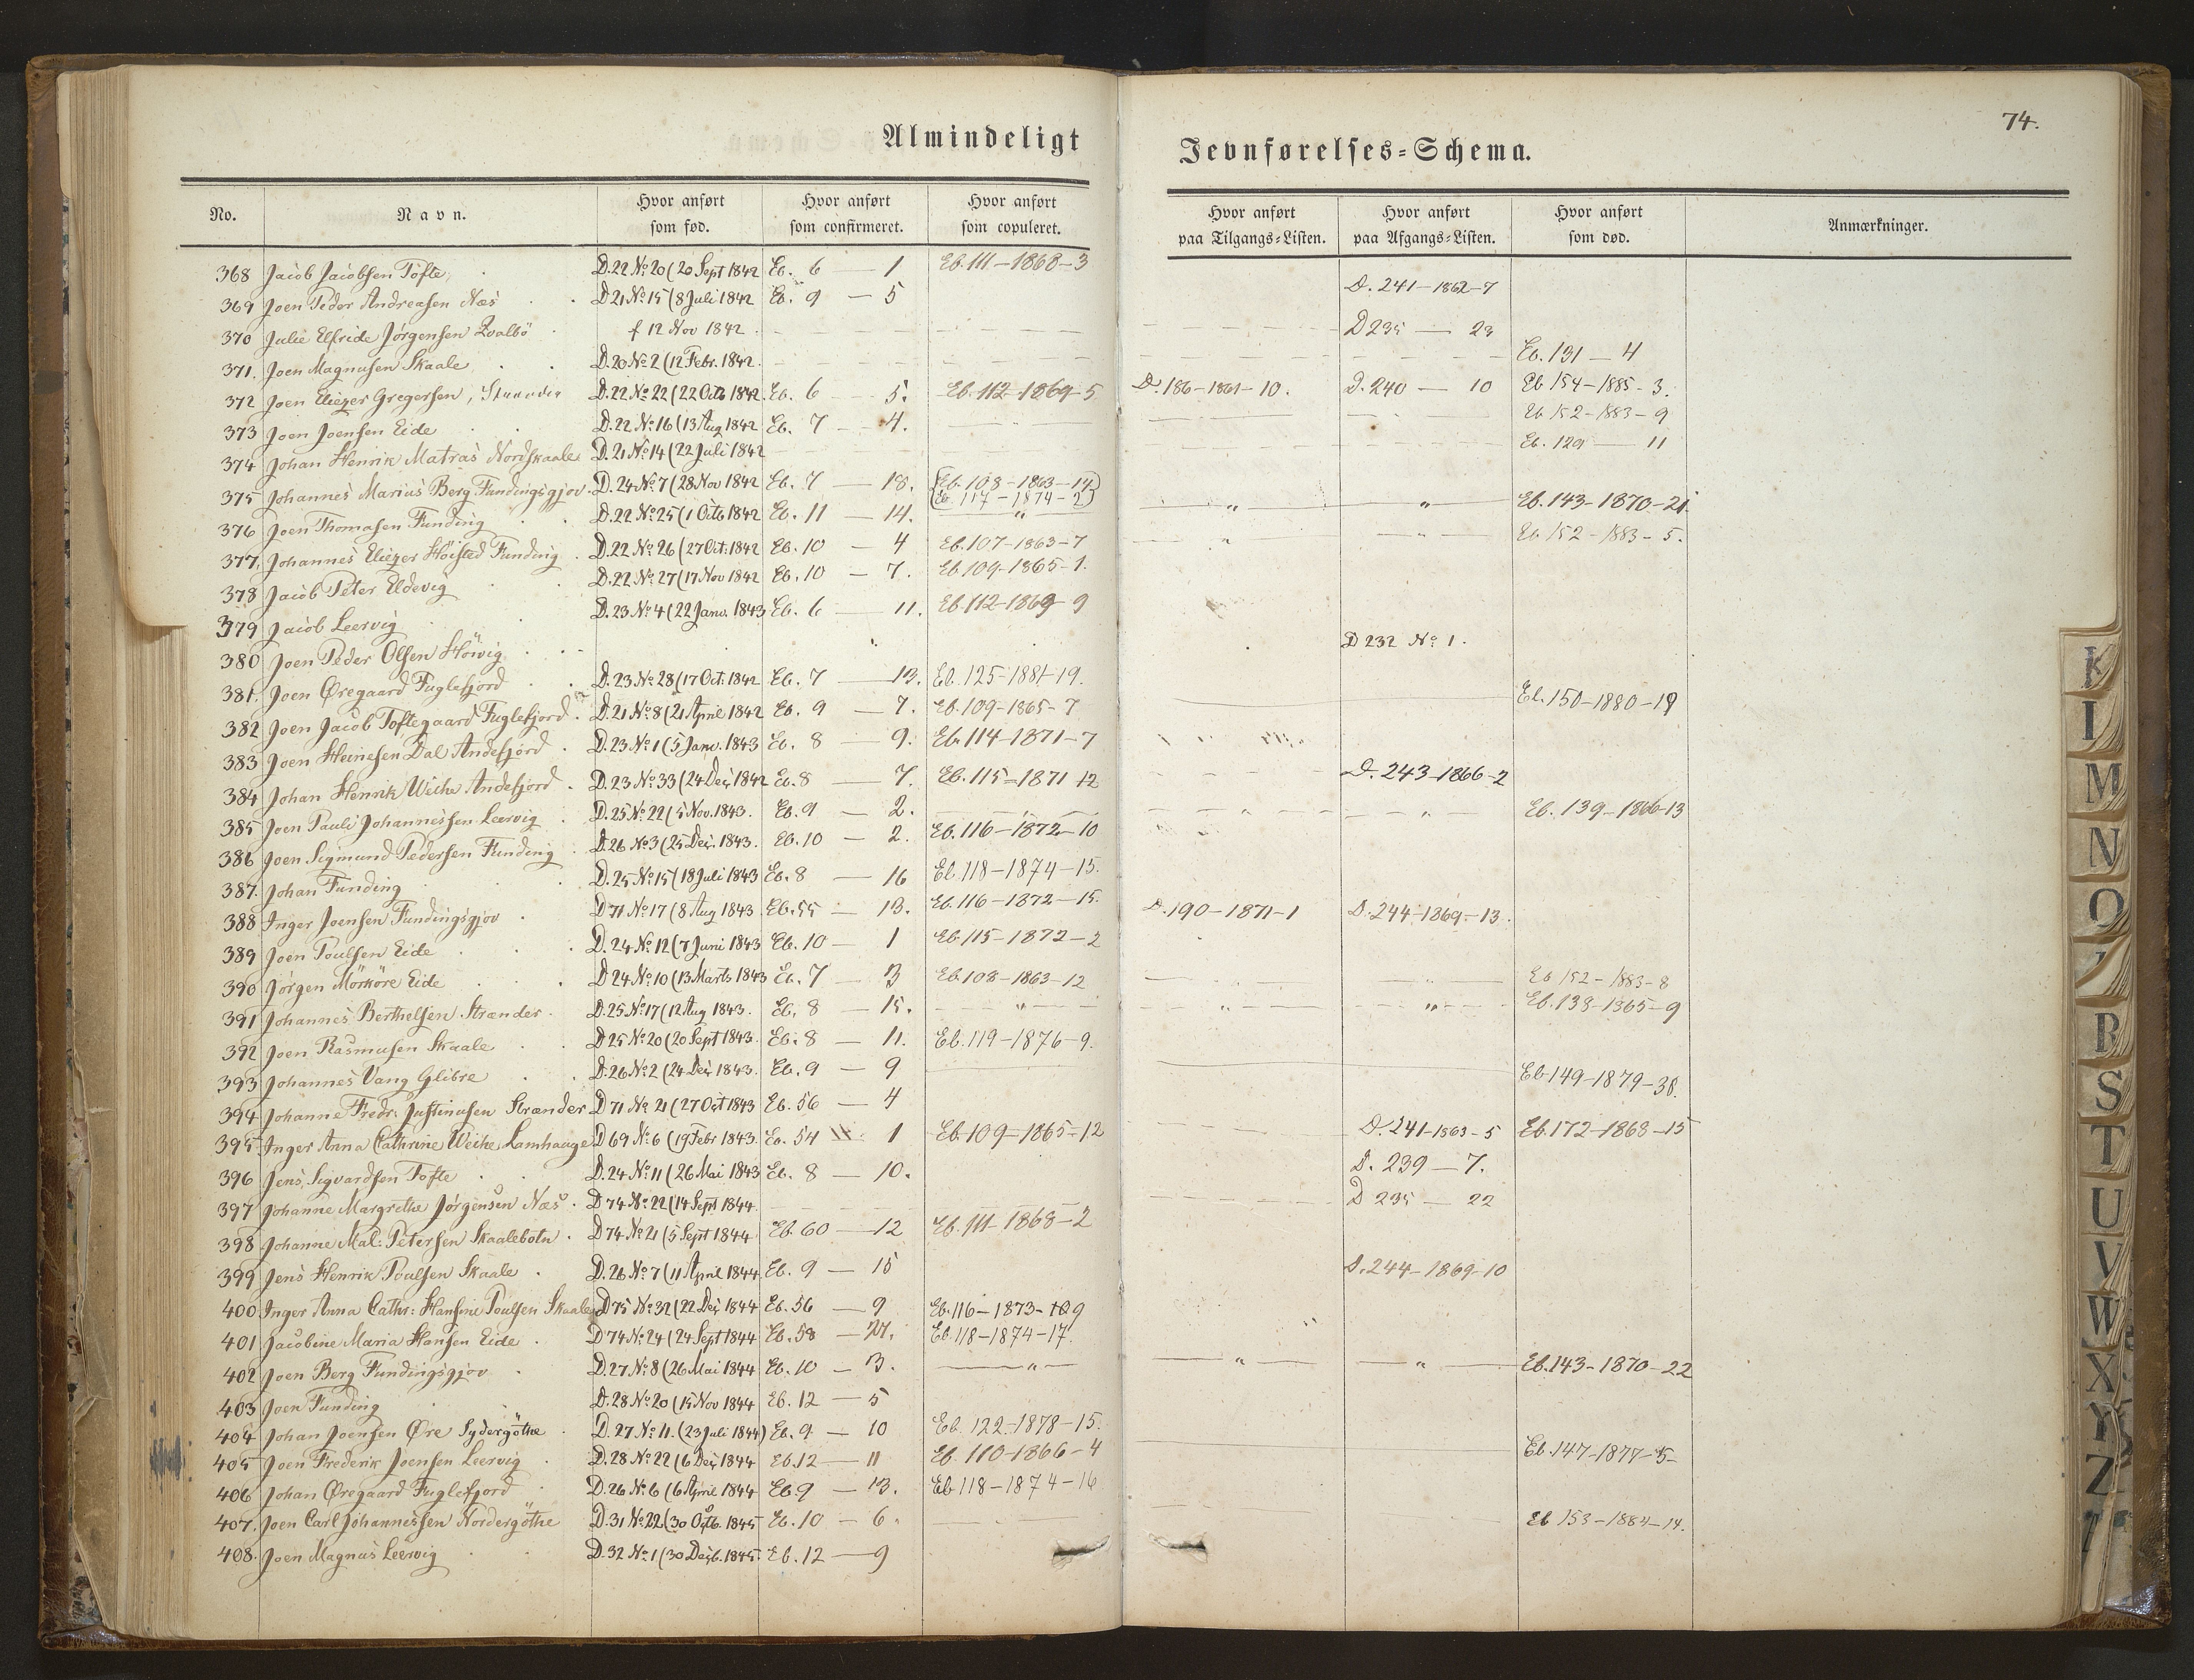 74.
Almindeligt Jevnførelses=Schema.
No. | Navn. | Hvor anført som fød. | Hvor anført som confirmeret. | Hvor anført som copuleret. | Hvor anført paa Tilgangs=Listen. | Hvor anført paa Afgangs=Listen. | Hvor anført som død. | Anmærkninger.
368 Jacob Jacobsen Tofte D.22 No 20 (20 Sept 1842 Eb. 6 — 1 Eb. 111 – 1868 – 3
369 Joen Peder Andreasen Næs D 21 No 15 (8 Juli 1842 Eb. 9 — 5 D. 241 – 1862 – 7
370 Julie Elfride Jørgensen Qvalbö f 12 Nov 1842 D 235 — 23
371. Joen Magnusen Skaale D.20 No 2 (12 Febr. 1842. Eb. 131 — 4
372 Joen Eliezer Gregersen, D.22 No 22 (22 Octb 1842. Eb. 6 5. Eb. 112 – 1869 – 5 D. 186 – 1861 – 10. D. 240 — 10 Eb 154 – 1885 – 3.
373 Joen Joensen Eide D.22 No 16 (13 Aug 1842 Eb. 7 — 4. Eb 152 – 1883 – 9
374 Johan Henrik Matras Nordskaale D. 21 No 14 (22 Juli 1842 Eb. 129 — 11
375 Johannes Marius Berg Fundingsgjov. D. 24 No 7 (28 Nov 1842 Eb. 7 — 18. (Eb. 108 – 1863 – 14) (Eb 117 – 1874 – 2)
376 Joen Thomasen Funding D.22 No 25 (1 Octb 1842 Eb. 11 — 14. " " " Eb. 143 – 1870 – 21.
377. Johannes Eliezer Höisted Funding D.22 No 26 (27 Oct. 1842 Eb. 10 — 4 Eb. 107 – 1863 – 7 Eb 152 – 1883 – 5.
378 Jacob Peter Eldevig D.22 No 27 (17 Nov 1842 Eb. 10 — 7. Eb 109 – 1865 – 1.
379 Jacob Leervig D.23 No 4 (22 Janv. 1843 Eb. 6 — 11. Eb. 112 – 1869 9
380 Joen Peder Olsen Höivig D 232 No 1.
381. Joen Øregaard Fuglefjord D.23 No 28 (17 Oct. 1842 Eb. 7 — 13. Eb. 125 – 1881 – 19.
382 Joen Jacob Toftegaard Fuglefjord D. 21 No 8 (21 April 1842 Eb. 9 — 7. Eb. 109 – 1865 – 7 Eb. 150 – 1880 – 19
383 Joen Heinesen Dal Andefjord D. 23 No 1 (5 Janv. 1843 Eb. 8 — 9. Eb. 114 – 1871 – 7
384 Johan Henrik Weihe Andefjord D. 23 No 33 (24 Dec 1842 Eb. 8 — 7. Eb. 115 – 1871 12 D. 243 – 1866 – 2
385 Joen Pauli Johannessen Leervig D. 25 No 22 (5 Nov. 1843. Eb. 9 — 2. Eb. 139 – 1866 – 13
386 Joen Sigmund Pedersen Funding D. 26 No 3 (25 Dec. 1843. Eb. 10 — 2. Eb. 116 – 1872 – 10
387. Johan Funding D. 25 No 15 (18 Juli 1843 Eb. 8 — 16 Eb. 118 – 1874 – 15.
388 Inger Joensen Fundingsgjov D 71 No 17 (8 Aug 1843 Eb. 55 — 13. Eb. 116 – 1872 – 15. D. 190 – 1871 – 1 D. 244 – 1869 – 13.
389 Joen Poulsen Eide D. 24 No 12 (7 Juni 1843 Eb. 10 — 1 Eb. 115 – 1872 – 2
390 Jørgen Mörköre Eide D 24 No 10 (13 Marts 1843 Eb. 7 — 3 Eb. 108 – 1863 – 12 Eb 152 – 1883 – 8
391 Johannes Berthelsen Strænder D. 25 No 17 (12 Aug 1843. Eb. 8 — 15. " " " Eb. 138 – 1865 – 9
392 Joen Rasmusen Skaale D 25 No 20 (20 Sept 1843. Eb. 8 — 11. Eb. 119 – 1876 – 9.
393 Johannes Vang Glibre D. 26 No 2 (24 Dec 1843. Eb. 9 — 9 Eb 149 – 1879 – 38.
394 Johanne Fredr. Justinusen Strænder D 71 No 21 (27 Oct 1843 Eb. 56 — 4
395 Inger Anna Cathrine Weihe Lamhauge D 69 No 6 (19 Febr 1843. Eb. 54 1 Eb. 109 – 1865 – 12 D. 241 – 1863 – 5 Eb. 172 – 1868 – 15
396 Jens Sigvardsen Tofte D. 24 No 11 (26 Mai 1843 Eb. 8 — 10. D. 239 — 7.
397 Johanne Margrethe Jørgensen Næs D 74 No 22 (14 Sept 1844 D 235 — 22
398 Johanne Mal: Petersen Skaalebotn D 74 No 21 (5 Sept 1844 Eb. 60 — 12 Eb. 111 1868 – 2
399 Jens Henrik Poulsen Skaale D. 26 No 7 (11 April 1844 Eb. 9 — 15 D. 244 – 1869 – 10
400 Inger Anna Cathr: Hansine Poulsen Skaale D 75 No 32 (22 Dec 1844 Eb. 56 — 9 Eb. 116 – 1873 – 9
401 Jacobine Maria Hansen Eide D 74 No 24 (24 Sept 1844 Eb. 58 — 21. Eb. 118 – 1874 – 17.
402 Joen Berg Fundingsgjov D. 27 No 8 (26 Mai 1844 Eb. 10 — 3. " " " Eb. 143 – 1870 – 22
403 Joen Funding D. 28 No 20 (15 Nov 1844 Eb. 12 — 5
404 Johan Joensen Øre Sydergöthe D. 27 No 11. (23 Juli 1844) Eb. 9 — 10 Eb. 122 – 1878 – 15.
405 Joen Frederik Joensen Leervig D. 28 No 22 (6 Dec 1844 Eb. 12 — 11 Eb. 110 – 1866 – 4 Eb. 147 – 1877 – 5
406 Johan Øregaard Fuglefjord D. 26 No 6 (6 April 1844 Eb. 9 — 13. Eb 118 – 1874 – 16
407. Joen Carl Johannessen Nordergöthe D. 31 No 22 (30 Octb. 1845 Eb. 10 — 6. Eb 153 – 1884 – 14.
408. Joen Magnus Leervig D. 32 No 1 (30 Decb. 1845. Eb. 12 — 9
K
I
M
N
O
R
S
T
U
V
W
X
Y
Z